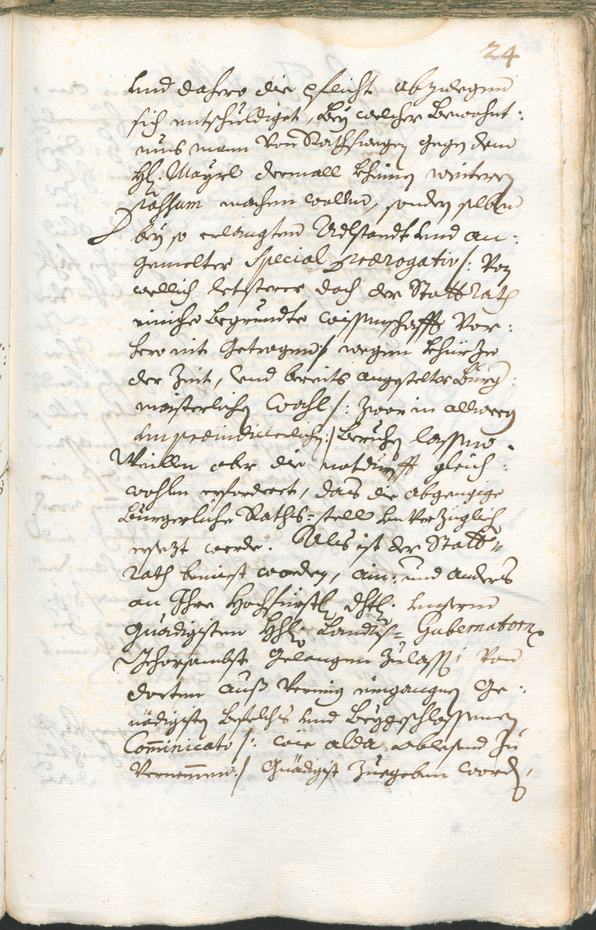 24
und dahero die pflicht abzulegen
sich entschuldiget, bey welcher bewohnt:
nus mann von Rathswegen gegen dem
H: Mayrl dermall kheinen weiteren
machen wollen, sonder selben
bey so erlangten Adlstandt und an:
gemelter Special Praerogativ /: von
wellich letsterer doch der Statt Rath
einiche begründte wissenschafft vor:
hero nit getragen / wegen khürze
der Zeit, und bereits angestelter Burg:
maisterlichen Wahl /: zwar in allweeg
:/ beruehen lassen.
Weillen aber die notdurfft gleich:
wohlen erfordert, dass die abgengige
Bürgerliche Raths=stell unverzüglich
ersezt werde. Als ist der Statt=
rath bemiest worden, ain: und anders
an Ihre Hochfürstl: dhtl: unsern
Gnädigsten H: Landts= Gubernatorn
gehorsambst gelangen zulassen; von
dorten auß vermüg eingangnen Ge:
nädigisten befelchs und beygeschlossnen
Comïnicato /: wie alda ablesend zu
vernemmen :/ Gnädigst zuegeben worden,